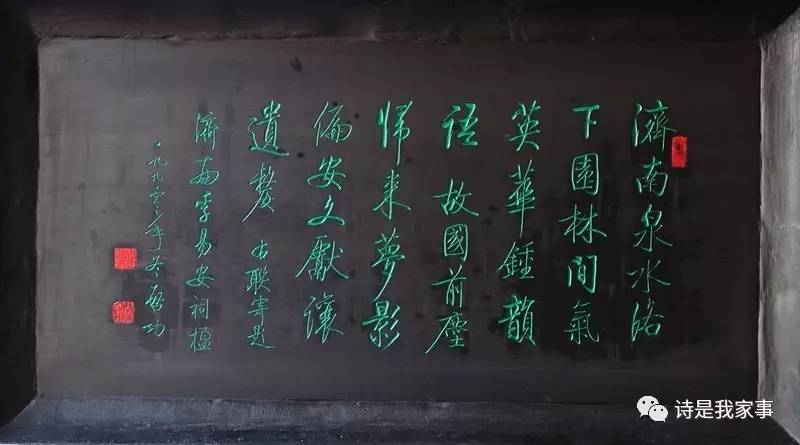 濟南泉水洛
下園林間氣
英華鍾韻
語 故國前塵
歸来夢影
偏安文獻讓
遺嫠 聯寄題
濟南李易安祠楹
一九九零年冬启功
诗是我家事